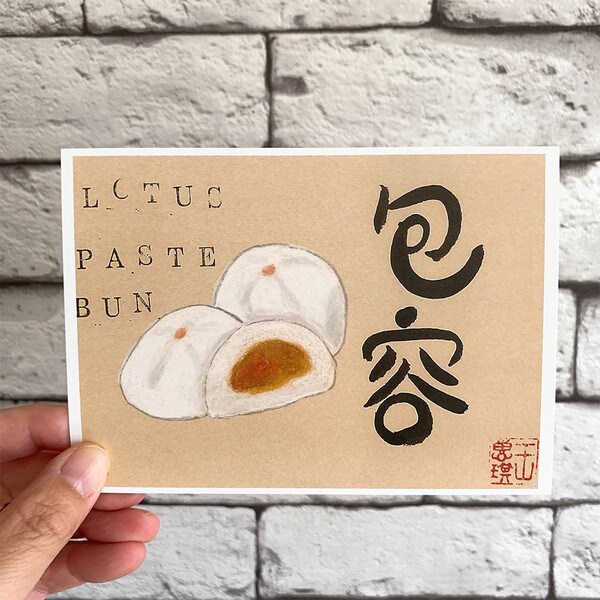 LOTUS
PASTE
BUN
包容